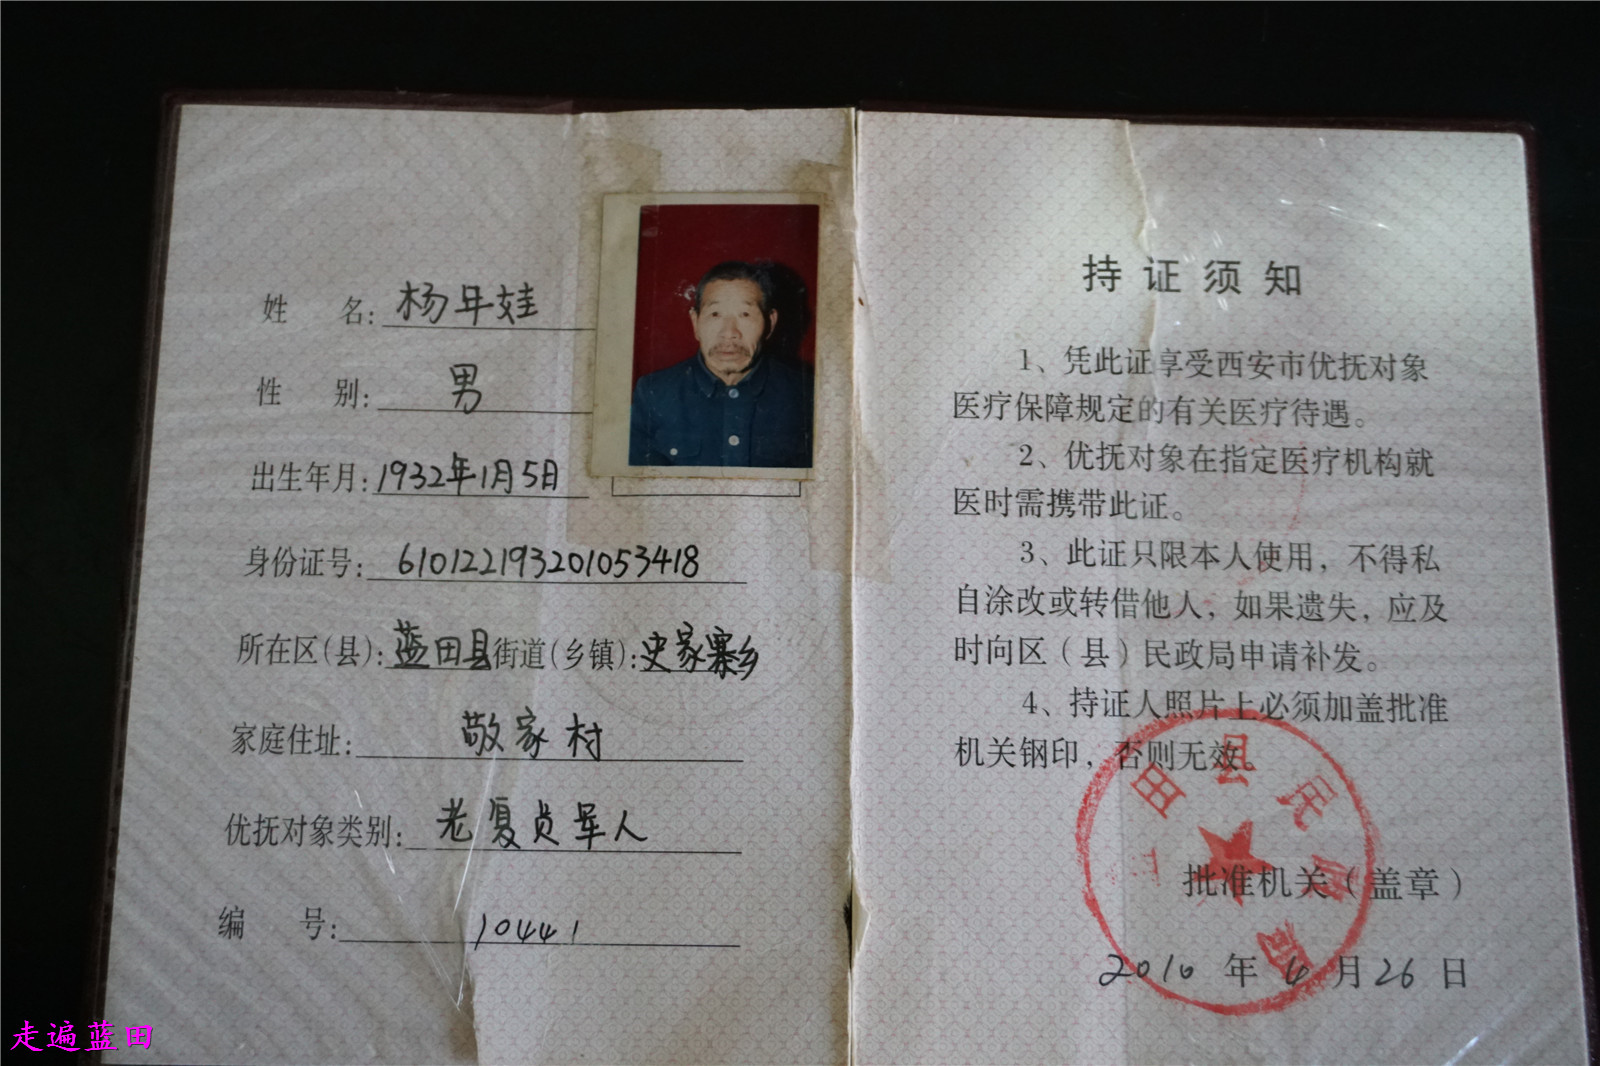 姓 名：杨年娃
性 别：男
出生年月：1932年1月5日
身份证号：610122193201053418
所在区（县）：蓝田县街道（乡镇）：史家寨乡
家庭住址：敬家村
优抚对象类别：老复员军人
编 号：10441
持证须知
1、凭此证享受西安市优抚对象
医疗保障规定的有关医疗待遇。
2、优抚对象在指定医疗机构就
医时需携带此证。
3、此证只限本人使用，不得私
自涂改或转借他人，如果遗失，应及
时向区（县）民政局申请补发。
4、持证人照片上必须加盖批准
机关钢印，否则无效。
田县民政局
批准机关（盖章）
2010年4月26日
走遍蓝田